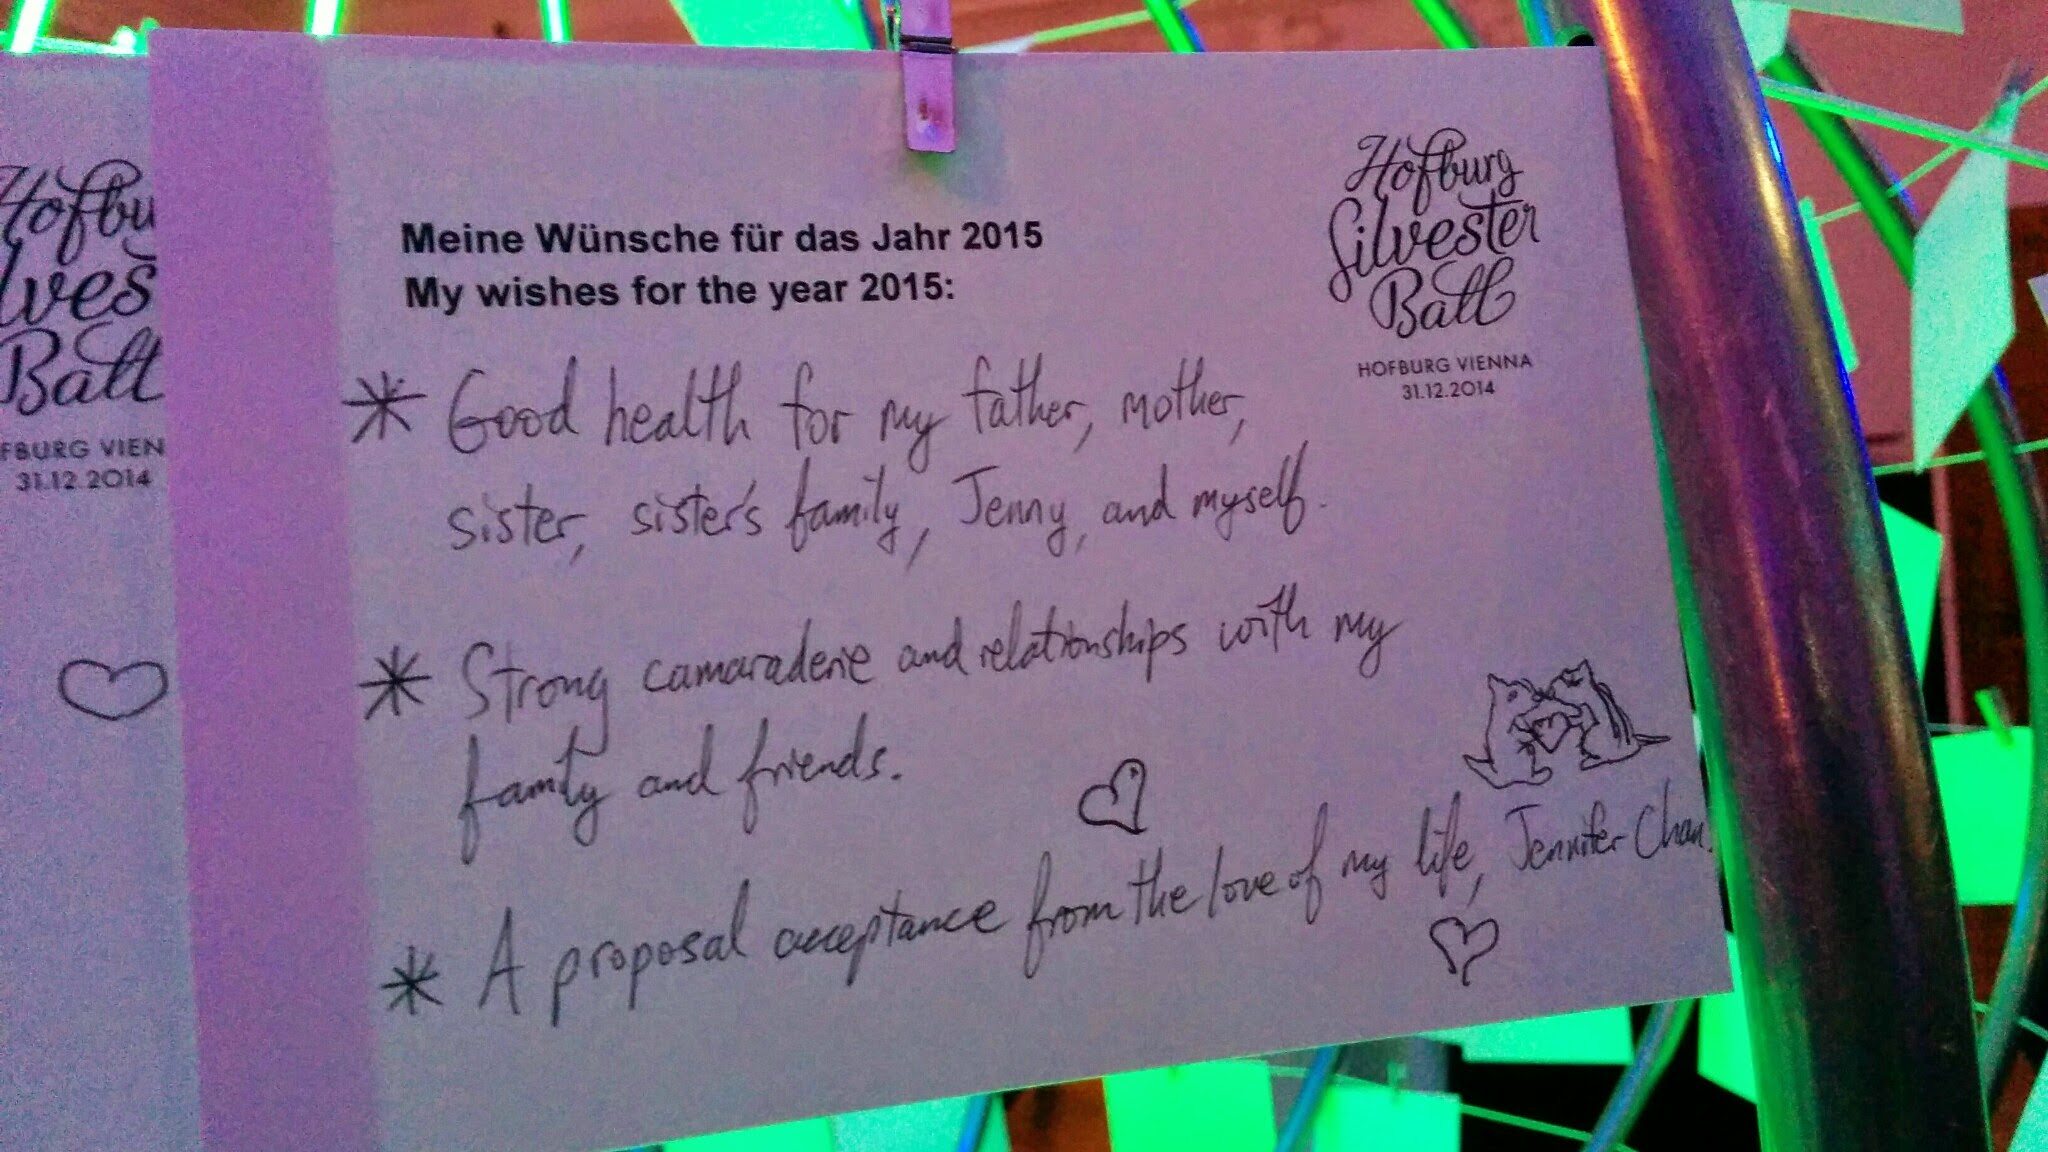 Hofbu
lves
Ball
FBURG VIEN
31.12.2014
Meine Wünsche für das Jahr 2015
My wishes for the year 2015:
Hofburg
Silvester
Ball
HOFBURG VIENNA
31.12.2014
* Good health for my father, mother,
sister, sister's family, Jenny, and myself.
* Strong camaraderie and relationships with my
family and friends.
* A proposal acceptance from the love of my life, Jennifer Chan.